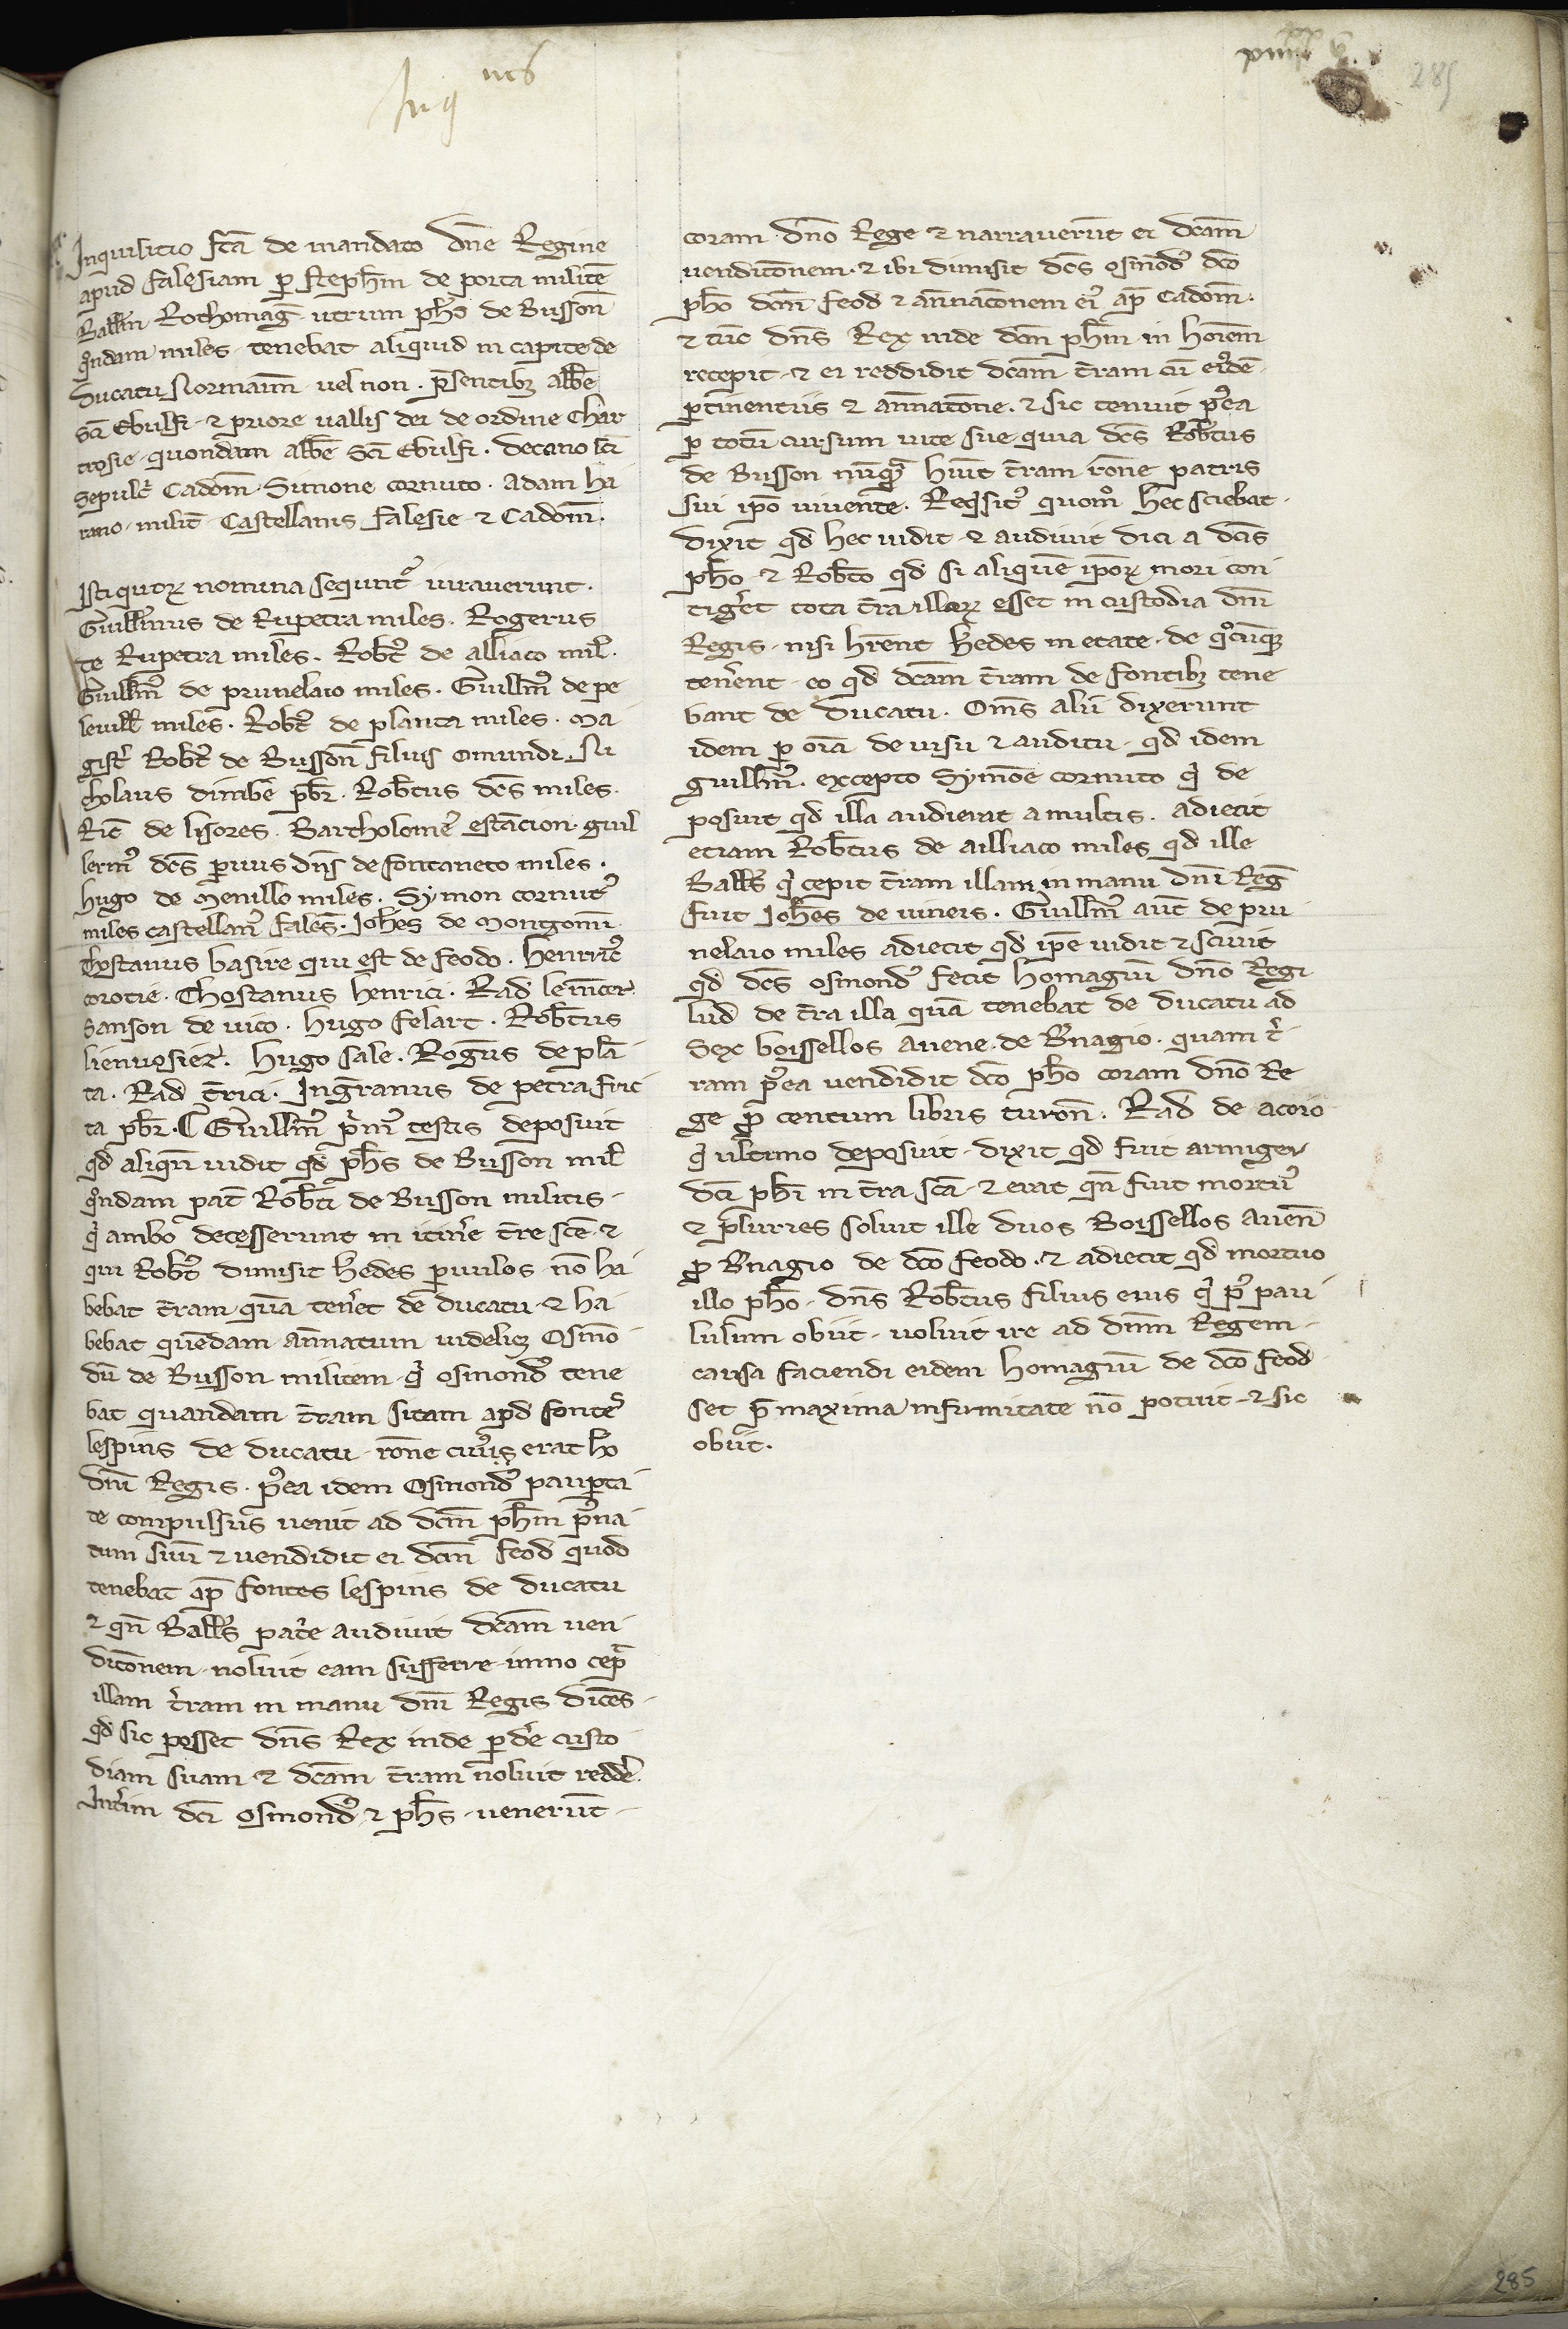 285
Inquisitio fcā de mandato dn̄e Regine
apud falesiam ꝑ steph̄m de porta militē
Ball̄m Rothomaḡ utrum ph̄s de Busson̄
q̊ndam miles tenebat aliquid in capite de
Ducatu Normann̄ uel non . p̄sentibꝫ abb̄e
Sc̄i Ebulfi ⁊ priore uallis dei de ordine Char
trosie quondam abb̄e Sc̄i Ebulfi . decano sc̄i
Sepulc̄ Cadom̄ . Simone cornuto . Adam ha
rano milit̄ Castellanis falesie ⁊ Cadom̄ .
Isti quoꝝ nomina sequnt᷑ iurauerunt .
Guill̄mus de Rupetra miles . Rogerus
de Rupetra miles . Rob̄t᷑ de alliaco mil̄ .
Guill̄m᷑ de prunelaio miles . Guill̄m᷑ de pe
leuill̄ miles . Rob̄t᷑ de planta miles . Ma
gist̄ Rob̄t᷑ de Busson̄ filius Omundi . Ni
cholaus dimb̄e p̄br . Rob̄tus dc̄s miles .
Ric̄ de lisores . Bartholome᷑ estancion . guil
lerm᷑ dc̄s ꝑuus dn̄s de fontaneto miles .
hugo de Menillo miles . Symon cornut᷑
miles castellan᷑ fales̄ . Joh̄es de Mongom̄i .
Thostanus basire qui est de feodo . henric᷑
corotie . Thostanus henrici . Rad̄ le mc̄er
Sanson de uico . hugo felart . Rob̄tus
lienuosier . hugo sale . Roḡus de plā
ta . Rad̄ t̄rici . Ingranus de petra fric
ta p̄br . ⸿ Guill̄m᷑ p̄m᷑ testis deposuit
qd̄ aliqn̄ uidit qd̄ ph̄s de Busson mil̄
q̊ndam pat̄ Rob̄ti de Busson militis
q̇ ambo decesserunt in itin̄e t̄re sc̄e ⁊
qui Rob̄t᷑ dimisit h̄edes ꝑuulos nō ha
bebat t̄ram quā ten̄et de ducatu ⁊ ha
bebat quēdam ānatum uidelicꝫ Osmō
dū de Busson militem q̇ osmond᷑ tene
bat quandam t̄ram sitam apd̄ fontes
lespins de ducatu rōne cuius erat hō
dn̄i Regis . p᷑ea idem Osmond᷑ pauꝑta
te compulsus uenit ad dcm̄ ph̄m p᷑na
tum suū ⁊ uendidit ei dcm̄ feod̄ quod
tenebat ap̄ fontes lespins de ducatu
⁊ qn̄ Ball̄s pat̄e audiuit dc̄am uen
ditōnem noluit eam sufferre immo cep̄
illam t̄ram in manu dn̄i Regis dicēs
qd̄ sic posset dn̄s Rex inde ꝑd̄e custo
diam suam ⁊ dc̄am t̄ram noluit redd̄e .
Int̄im dc̄i Osmond᷑ ⁊ ph̄s uenerūt
coram dn̄o Rege ⁊ narrauerūt ei dc̄am
uenditōnem . ⁊ ibi dimisit dc̄s osmōd᷑ dc̄o
ph̄o dc̄m feod̄ ⁊ ānatōnem ei᷑ ap̄ Cadom̄ .
⁊ tūc dn̄s Rex inde dc̄m ph̄m in hoīem
recepit ⁊ ei reddidit dc̄am t̄ram cū ei᷑dē
ꝑtinentiis ⁊ ānatōne . ⁊ sic tenuit p᷑ea
ꝑ totū cursum uite sue quia dc̄s Rob̄tus
de Busson nūqᷓ hūit t̄ram rōne patris
sui ip̄o uiuente . Req̇sit᷑ quom̊ hec sciebat .
dixit qd̄ hec uidit ⁊ audiuit dici a dc̄is
ph̄o ⁊ Rob̄to qd̄ si aliquē ip̄oꝝ mori con
tiḡet tota t̄ra illoꝝ esset in custodia dn̄i
Regis . nisi hr̄ent h̄edes in etate . de q̊cūqꝫ
ten̄ent eo qd̄ dc̄am t̄ram de fontibꝫ tene
bant de ducatu . Om̄s alii dixerunt
idem ꝑ oīa de uisu ⁊ auditu qd̄ idem
guill̄m᷑ . excepto Symōe cornuto q̇ de
posuit qd̄ illa audierat a multis . adiecit
etiam Rob̄tus de ailliaco miles qd̄ ille
Ball̄s q̇ cepit t̄ram illam in manu dn̄i Reḡ
fuit Joh̄es de uineis . Guill̄m᷑ aut̄ de pru
nelaio miles adiecit qd̄ ip̄e uidit ⁊ sciuit
qd̄ dc̄s osmond᷑ fecit homagiū dn̄o Regi
lud̄ de t̄ra illa quā tenebat de ducatu ad
Sex boissellos auene . de B̄nagio . quam t̄
ram p᷑ea uendidit dc̄o ph̄o coram dn̄o Re
ge ꝓ centum libris turon̄ . Rad̄ de acoio
q̇ ultimo deposuit dixit qd̄ fuit armiger
dc̄i ph̄i in t̄ra sc̄a ⁊ erat qn̄ fuit mortu᷑
⁊ pluries soluit ille duos Boissellos auen̄
ꝓ B̄nagio de dc̄o feodo . ⁊ adiecit qd̄ mortuo
illo ph̄o . dn̄s Rob̄tus filius eius q̇ p᷑ pau
lulum obiit uoluit ire ad dn̄m Regem
causa faciendi eidem homagiū de dc̄o feod̄
set p̄ maxima infirmitate nō potuit ⁊ sic
obiit .
285